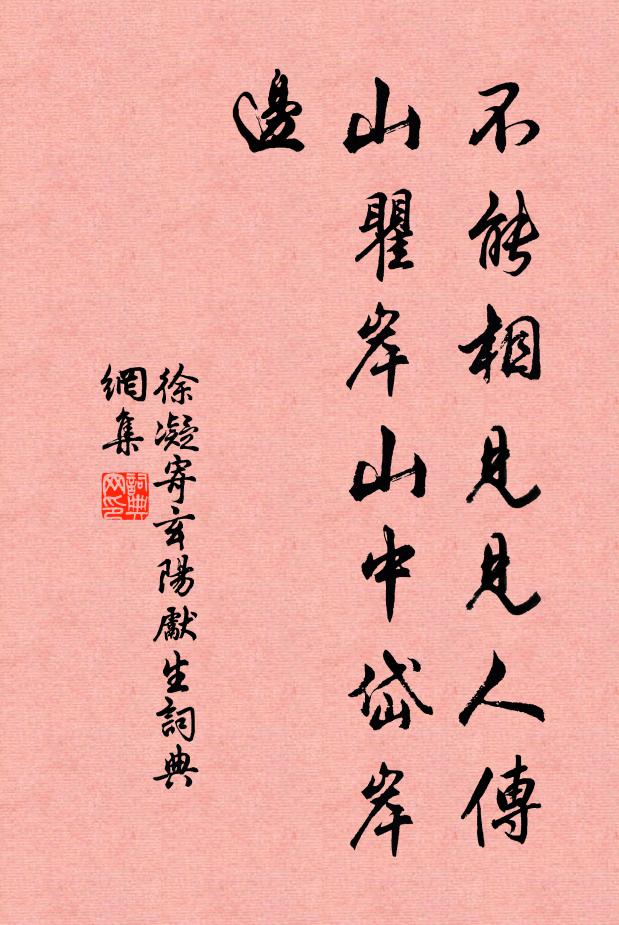 不能相見見人傳
山瞿岸山中岱岸
邊
徐凝寄玄陽獻生詞典
網集
詞典網印